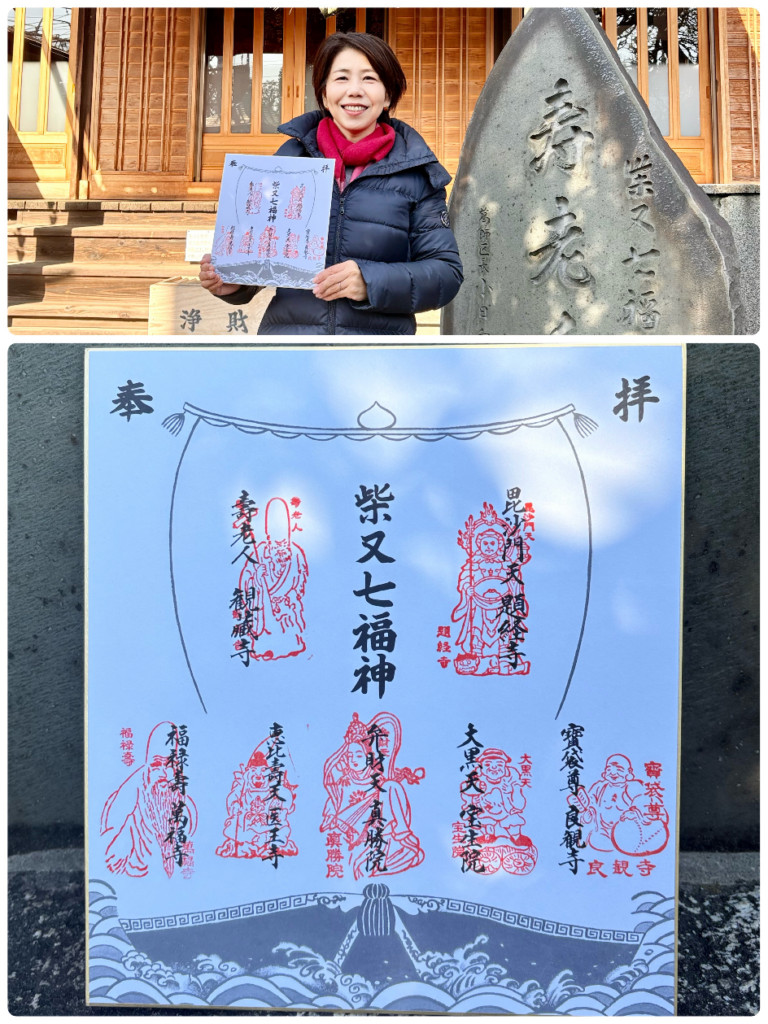 奉 拝
柴又七福神
壽老人
柴又七福
浄財
奉 拝
柴又七福神
毘沙門天 題経寺
毘沙門天
題経寺
壽老人 観蔵寺
寿老人
寶袋尊 良観寺
寶袋尊
良観寺
大黒天 宝生院
大黒天
宝生院
弁財天 真勝院
眞勝院
恵比寿天 医王寺
福禄寿 萬福寺
福禄寿